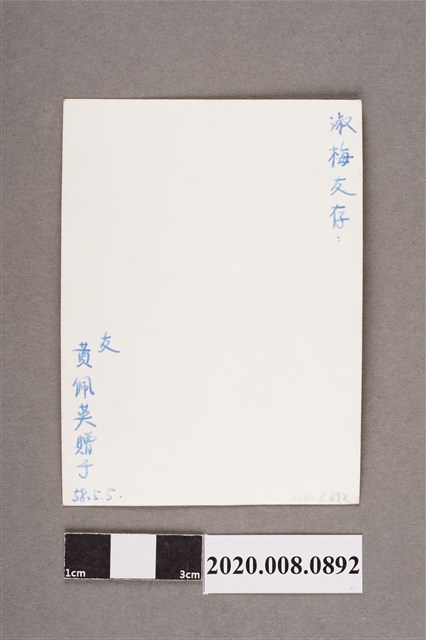 淑梅友存：
友
黄佩英贈于
58.5.5.
1cm
3cm
2020.008.0892